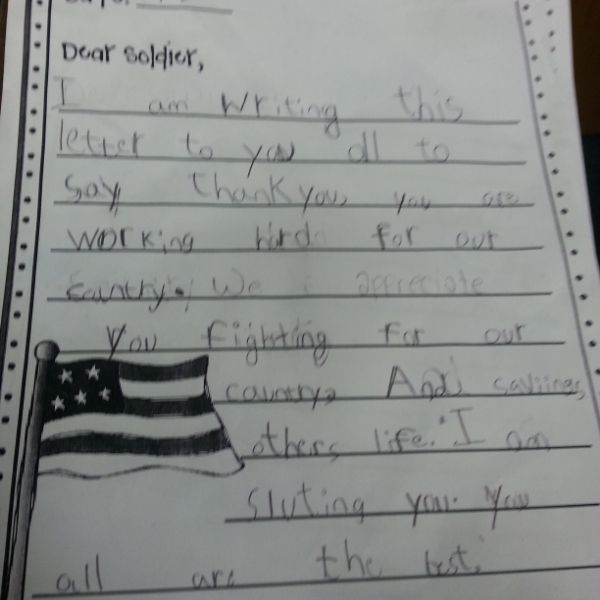 Dear Soldier,
I am Writing this
letter to you all to
say, thank you, you are
working hard for our
country. We appreciate
you fighting for our
country, And saviines
others life. I am
sluting you. You
all are the best.